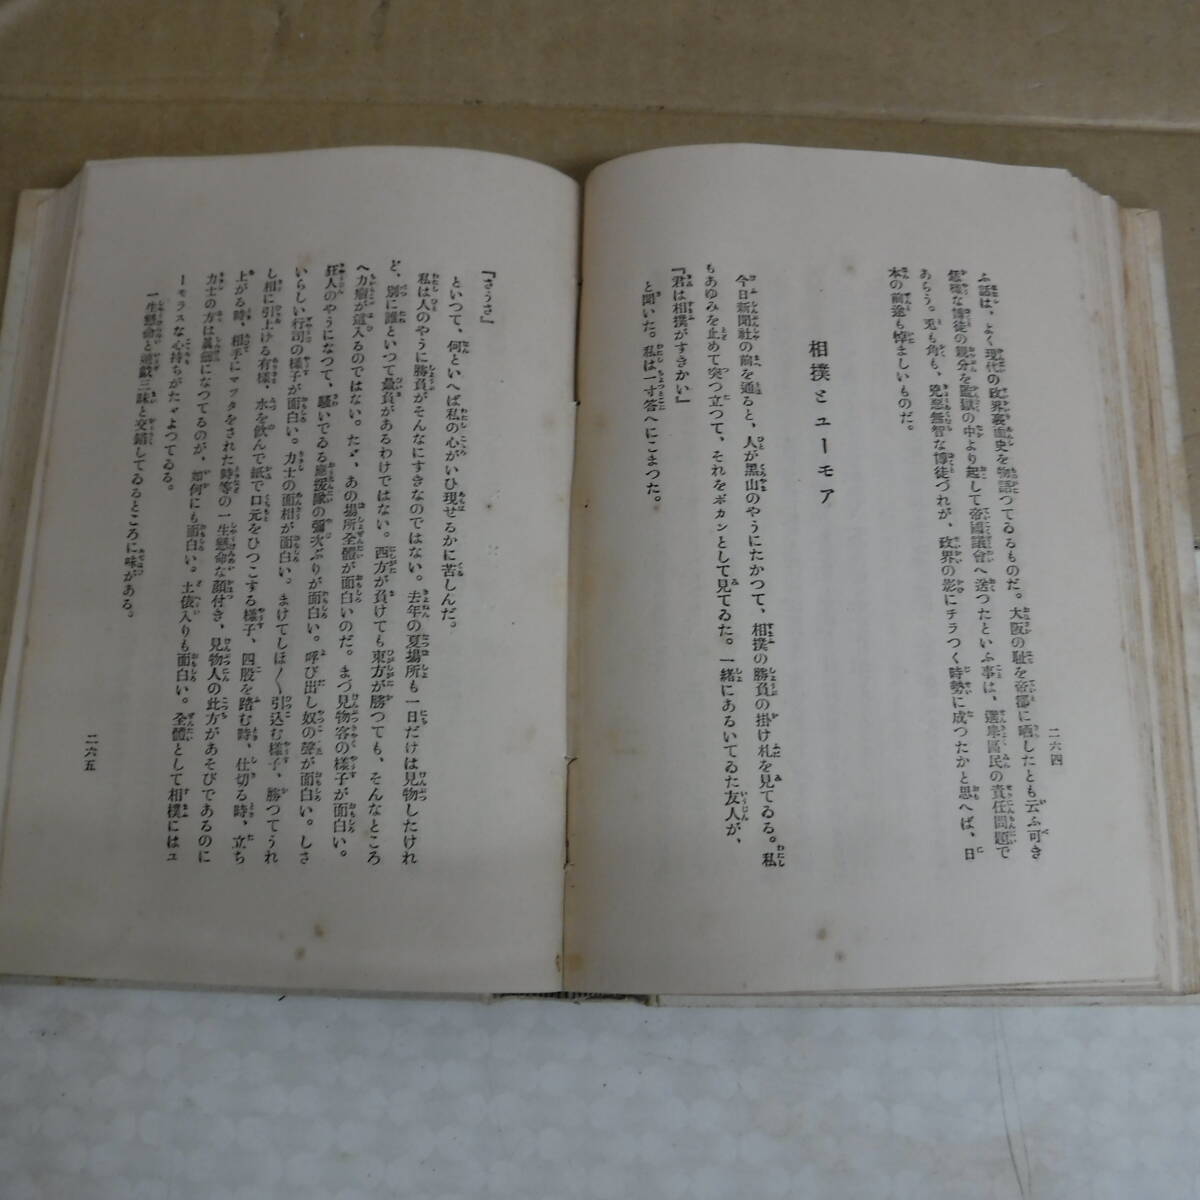 二六四
ふ話は、よく現代の政界裏面史を物語つてゐるものだ。大阪の恥を帝都に晒したとも云ふ可き
無智な博徒の親分を監獄の中より起して帝國議會へ送つたといふ事は、選擧區民の責任問題で
あらう。兎も角も、兇惡無智な博徒づれが、政界の影にチラつく時勢に成つたかと思へば、日
本の前途も悼ましいものだ。
相撲とユーモア
今日新聞社の前を通ると、人が黑山のやうにたかつて、相撲の勝負の掛け札を見てゐる。私
もあゆみを止めて突つ立つて、それをポカンとして見てゐた。一緒にあるいてゐた友人が、
『君は相撲がすきかい』
と聞いた。私は一寸答へにこまつた。
『さうさ』
といつて、何といへば私の心がいひ現せるかに苦しんだ。
私は人のやうに勝負がそんなにすきなのではない。去年の夏場所も一日だけは見物したけれ
ど、別に誰といつて贔負があるわけではない。西方が負けても東方が勝つても、そんなところ
へ力瘤が這入るのではない。たゞ、あの場所全體が面白いのだ。まづ見物客の樣子が面白い。
狂人のやうになつて、騷いでゐる應援隊の彌次ぶりが面白い。呼び出し奴の聲が面白い。しさ
いらしい行司の樣子が面白い。力士の面相が面白い。まけてしほ〳〵引込む樣子、勝つてうれ
し相に引上げる有樣、水を飮んで紙で口元をひつこする樣子、四股を踏む時、仕切る時、立ち
上がる時、相手にマッタをされた時等の一生懸命な顔付き、見物人の此方があそびであるのに
力士の方は眞劍になつてるのが、如何にも面白い。土俵入りも面白い。全體として相撲にはユ
ーモラスな心持ちがたゞよつてゐる。
一生懸命と遊戲三昧と交錯してゐるところに味がある。
二六五